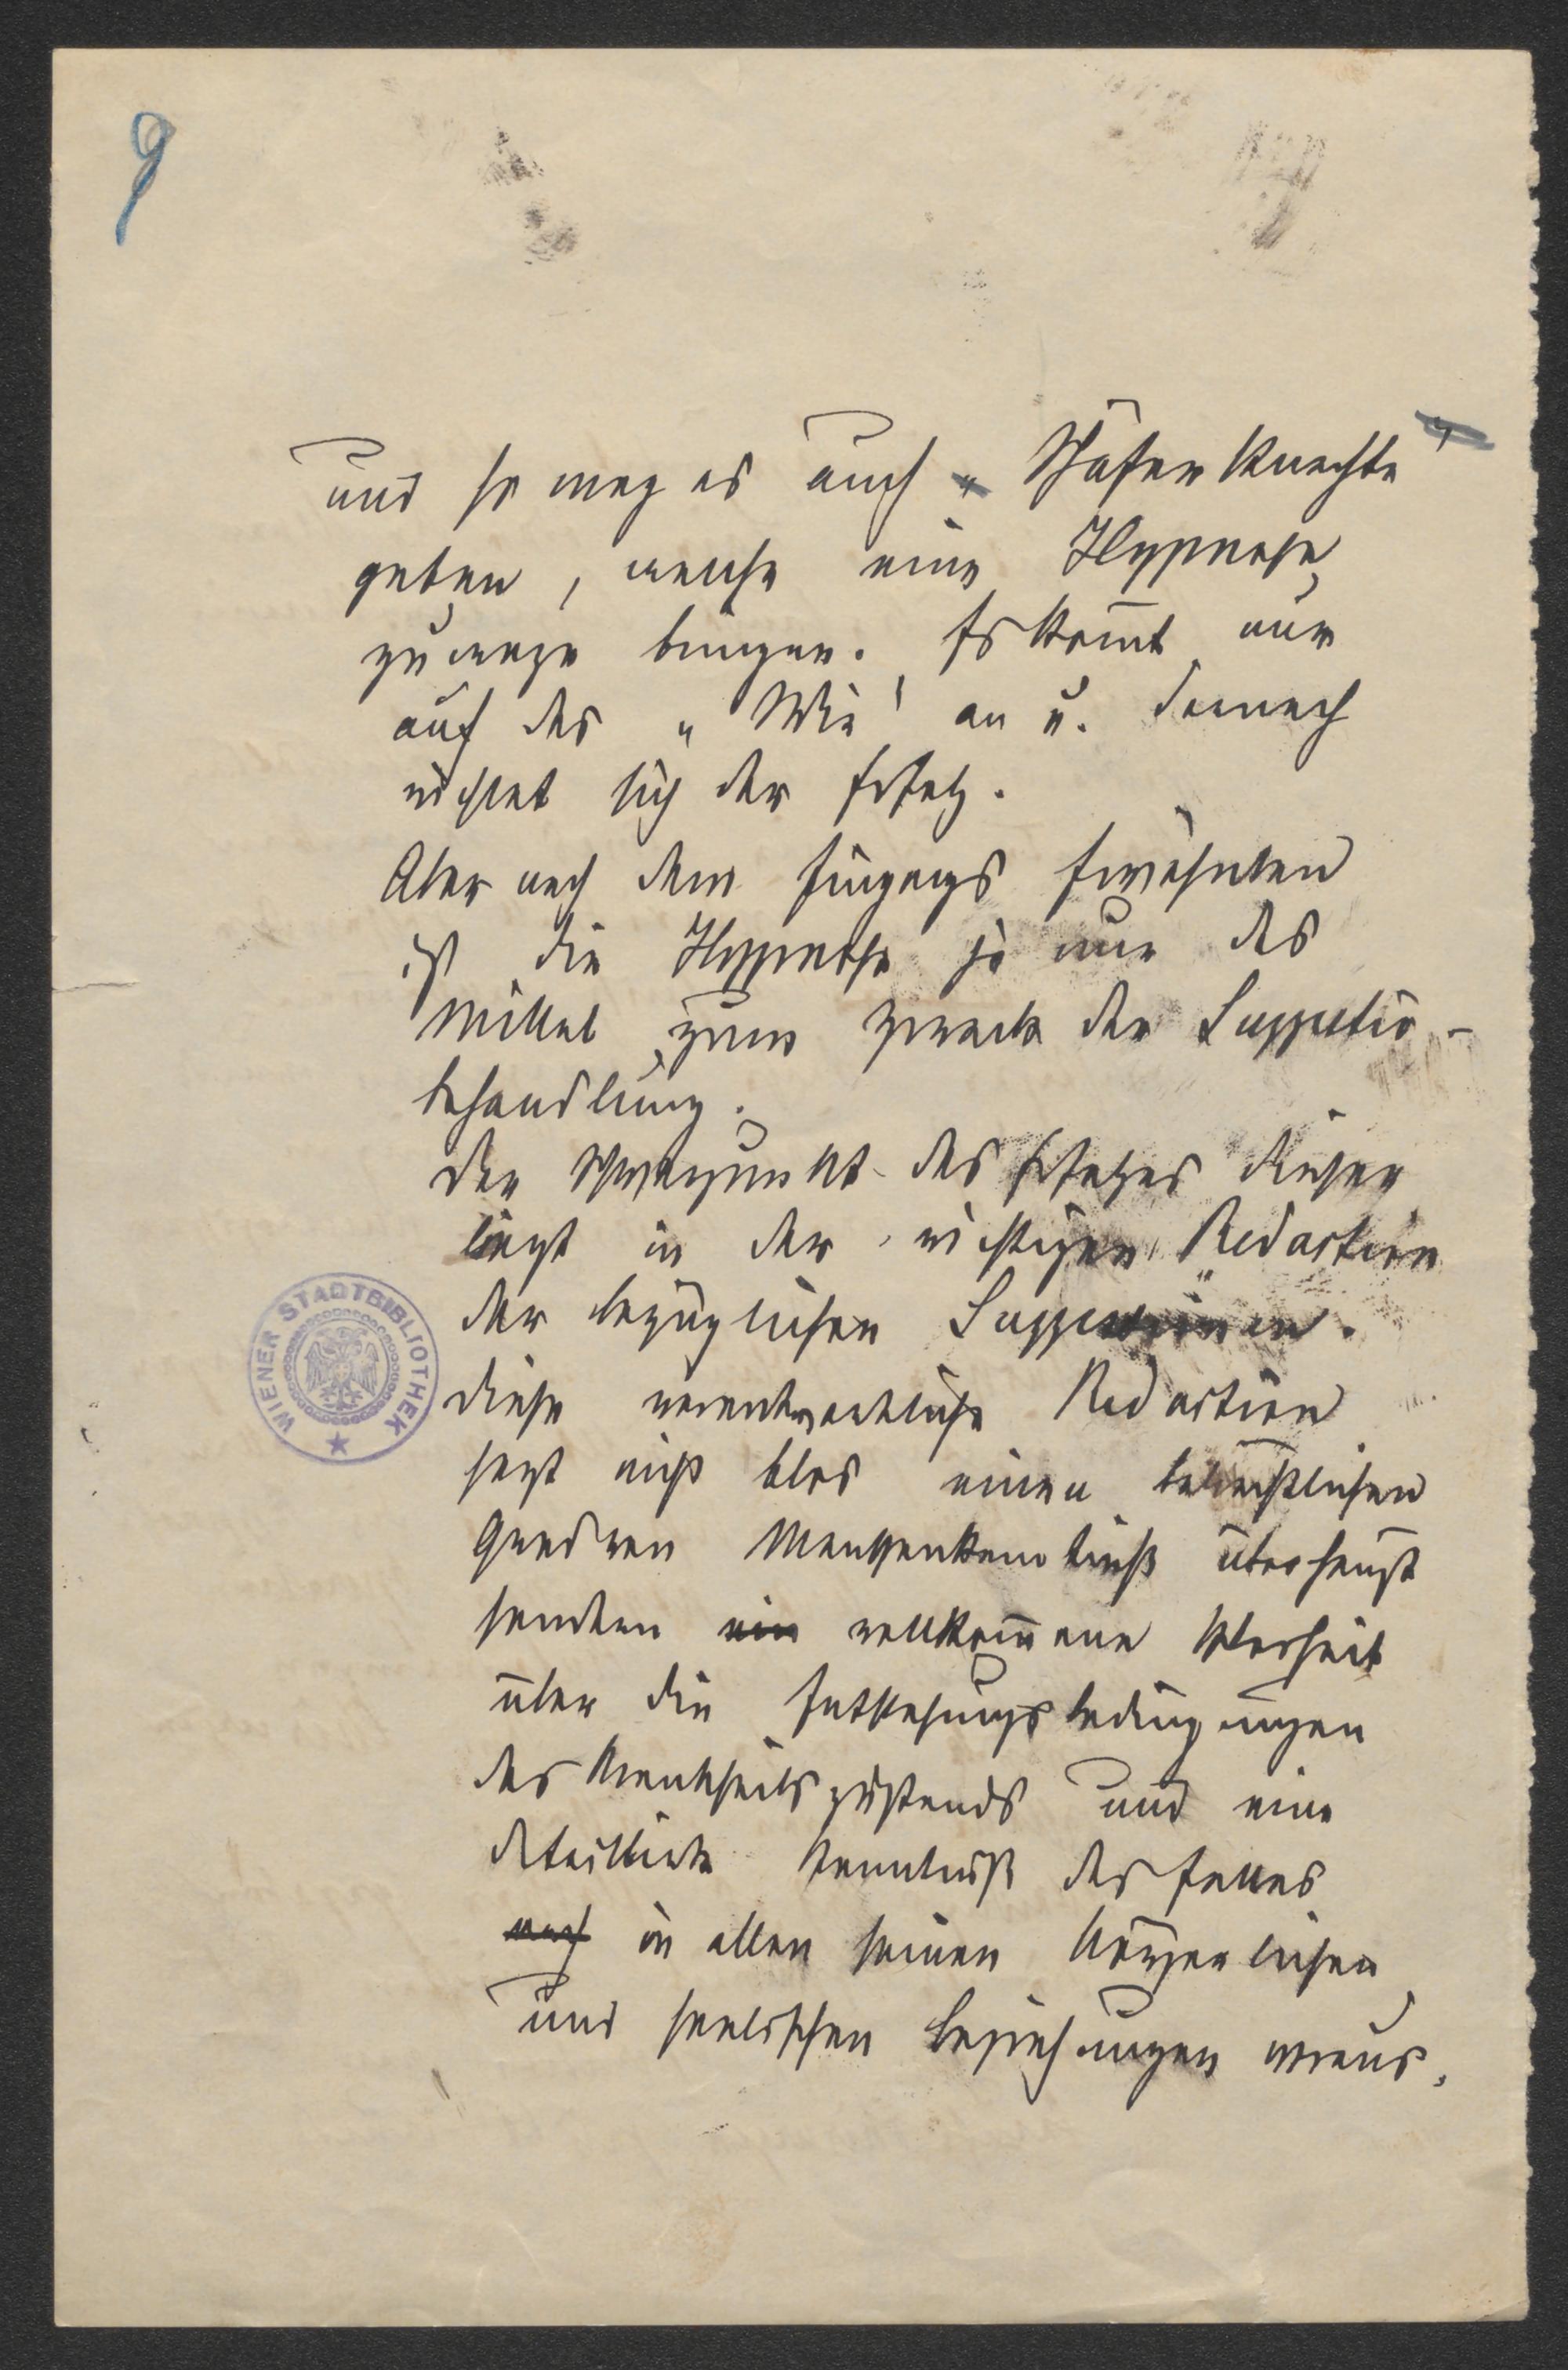 9
und so mag es auch „Schäferknechte“
geben, welche eine Hypnose
zuwege bringen. Es kom̄t nur
auf das „Wie“ an u. darnach
richtet sich der Erfolg.
Aber nach dem Eingangs Erwähnten
ist die Hypnose ja nur das
Mittel zum Zweck der Suggestiv-
behandlung.
Der Schwerpunkt des Erfolges dieser
liegt in der „richtigen“ Redaction
der bezüglichen Suggestionen.
Diese verantwortliche Redaction
setzt nicht blos einen beträchtlichen
Grad von Menschenkenntniß überhaupt
sondern ein vollkom̄ene Klarheit
über die Entstehungsbedingungen
des Krankheitszustands und eine
detaillirte Kenntniß des Falles
auch in allen seinen körperlichen
und seelischen Beziehungen voraus.
WIENER STADTBIBLIOTHEK